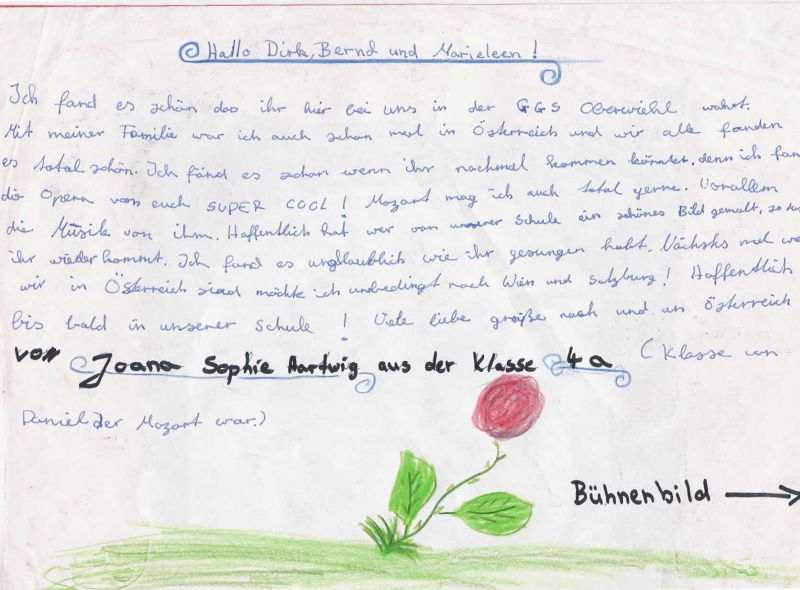 Hallo Dirk, Bernd und Marieleen!
Ich fand es schön das ihr hier bei uns in der GGS Oberwiehl wahrt.
Mit meiner Familie war ich auch schon mal in Österreich und wir alle fanden
es total schön. Ich fänd es schön wenn ihr nochmal kommen könntet, denn ich fan
die Opern von euch SUPER COOL! Mozart mag ich auch total gerne. Vorallem
die Musik von ihm. Hoffentlich hat wer von unserer Schule ein schönes Bild gemalt, so das
ihr wieder kommt. Ich fand es unglaublich wie ihr gesungen habt. Nächstes mal we
wir in Österreich sind möchte ich unbedingt nach Wien und Salzburg! Hoffentlich
bis bald in unserer Schule! Viele liebe grüße noch und an Österreich
von Joana Sophie Hartwig aus der Klasse 4a (Klasse von
Daniel der Mozart war.)
Bühnenbild →